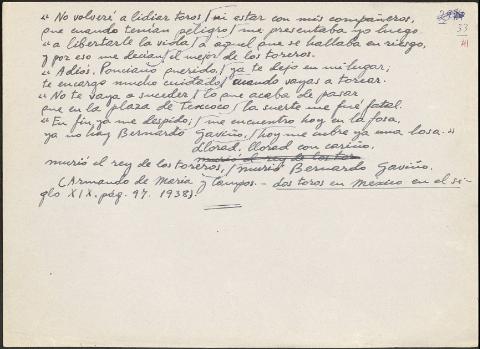 " No volveré a lidiar toros / ni estar con mis compañeros,
que cuando tenían peligro / me presentaba yo luego
" a libertarle la vida / a aquel que se hallaba en riesgo,
y por eso me decían / el mejor de los toreros.
" Adiós, Ponciano querido, / ya te dejo en mi lugar;
te encargo mucho cuidado / cuando vayas a torear.
" No te vaya a suceder / lo que acaba de pasar
que en la plaza de Texcoco / la suerte me fué fatal.
" En fin, ya me despido; / me encuentro hoy en la fosa,
ya no hay Bernardo Gaviño, / hoy me cubre ya una losa. "
Llorad, llorad con cariño,
murió el rey de los tor
murió el rey de los toreros, / murió Bernardo Gaviño.
(Armando de Maria y Campos. - Los toros en Mexico en el si-
glo XIX. pág. 97. 1938).
33
41